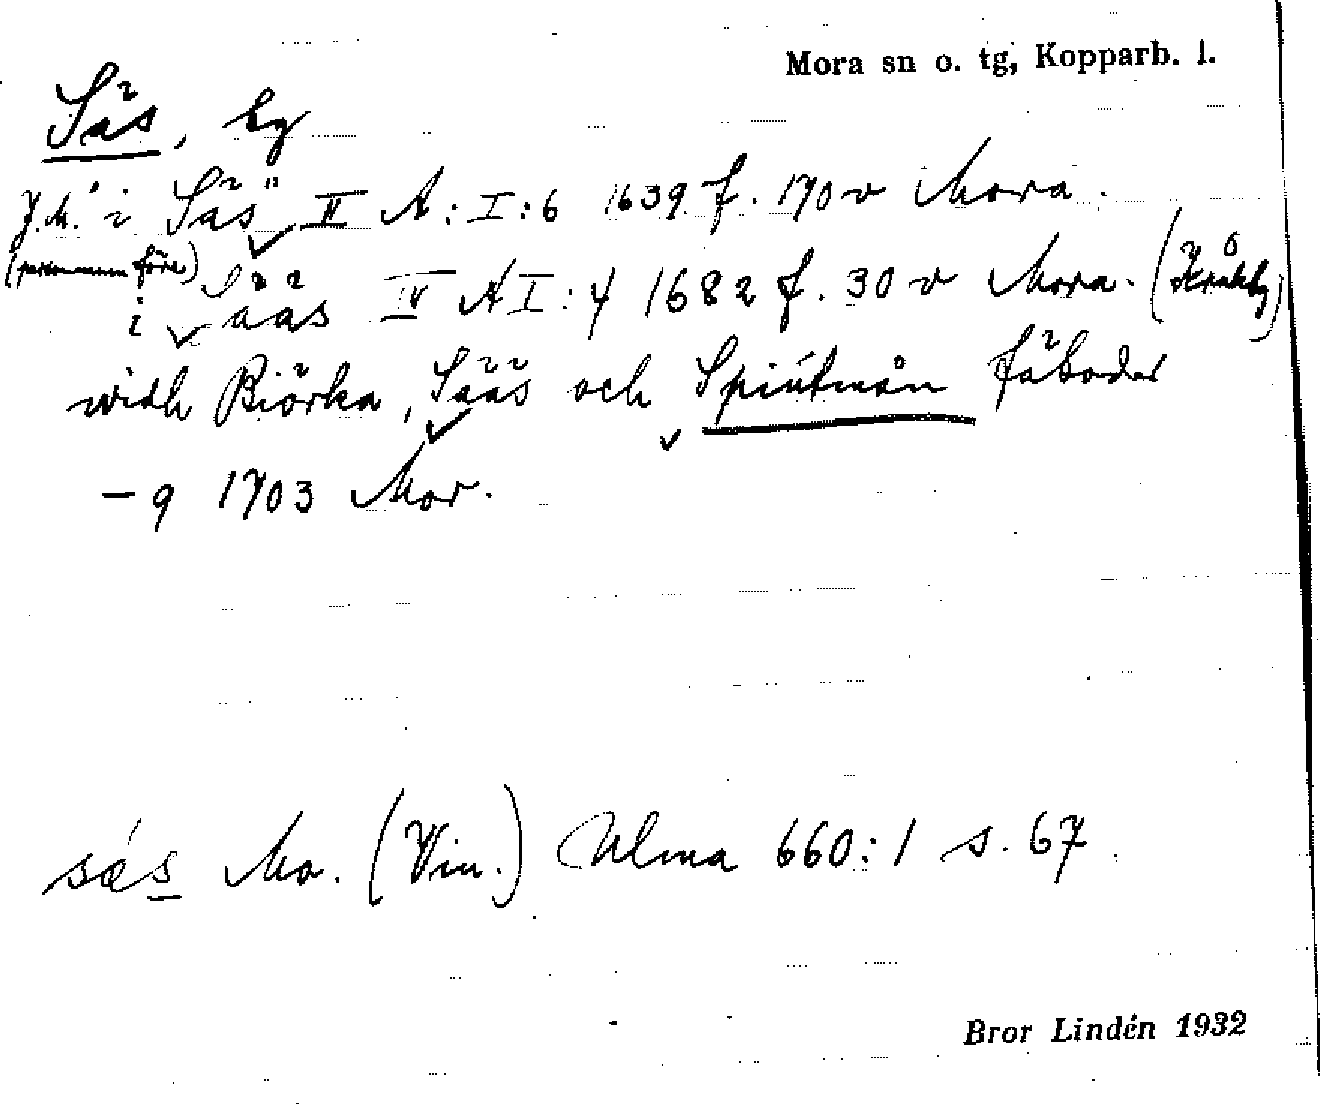 Mora sn o. tg, Kopparb. l.
Säs, by
i Säs" II A:I:6 1639 f. 170 v Mora.
(personnamn före)
i Sääs IV AI:4 1682 f. 30 v Mora.
widh Biörka, Sääs och Spiutmån fäboder
— 9 1703 Mor.
säs Mo. (Vin.) Ulma 660:1 s. 67
Bror Lindén 1932